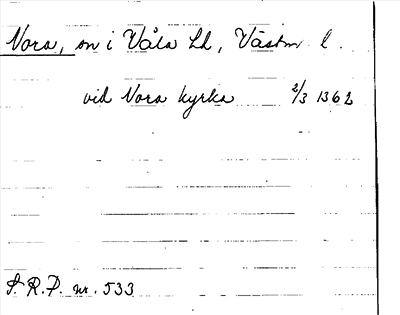 Nora, sn i Våla hd, Västm. l.
vid Nora kyrka 2/3 1362
S. R. P. nr. 533